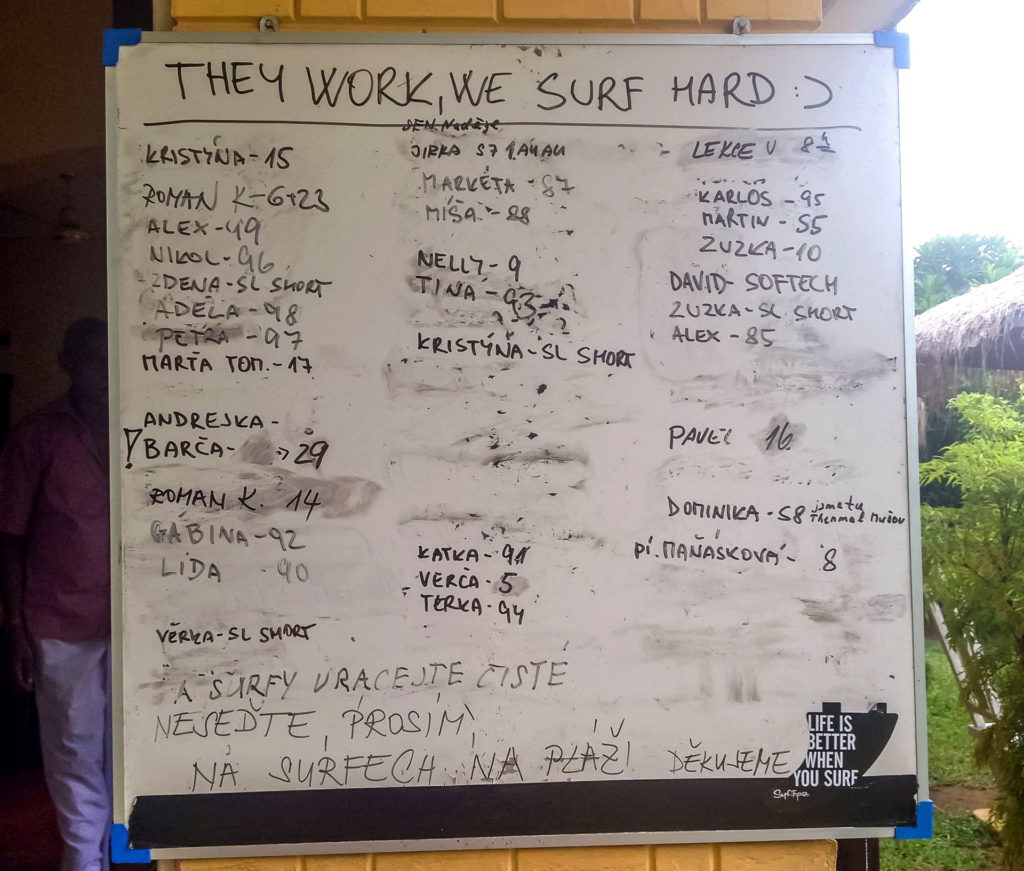 THEY WORK, WE SURF HARD :)
KRISTÝNA - 15
ROMAN K - 6+23
ALEX - 49
NIKOL - 96
ZDENA - SL SHORT
ADÉLA - 98
PETRA - 97
MARTA TOM. - 17
ANDREJKA -
! BARČA - -> 29
ROMAN K. 14
GÁBINA - 92
LÍDA - 90
VĚRKA - SL SHORT
SEN. Naděje
JIRKA 57
MARKÉTA - 87
MÍŠA - 88
NELLY - 9
TINA - 93
KRISTÝNA - SL SHORT
KATKA - 91
VERČA - 5
TERKA - 94
LEKCE V 8
KARLOS - 95
MARTIN - 55
ZUZKA - 10
DAVID - SOFTECH
ZUZKA - SL SHORT
ALEX - 85
PAVEL 16
DOMINIKA - 58
Thermal
PÍ. MAŇÁSKOVÁ - 8
A SURFY VRACEJTE ČISTÉ
NESEĎTE, PROSÍM,
NA SURFECH NA PLÁŽI DĚKUJEME
LIFE IS
BETTER
WHEN
YOU SURF